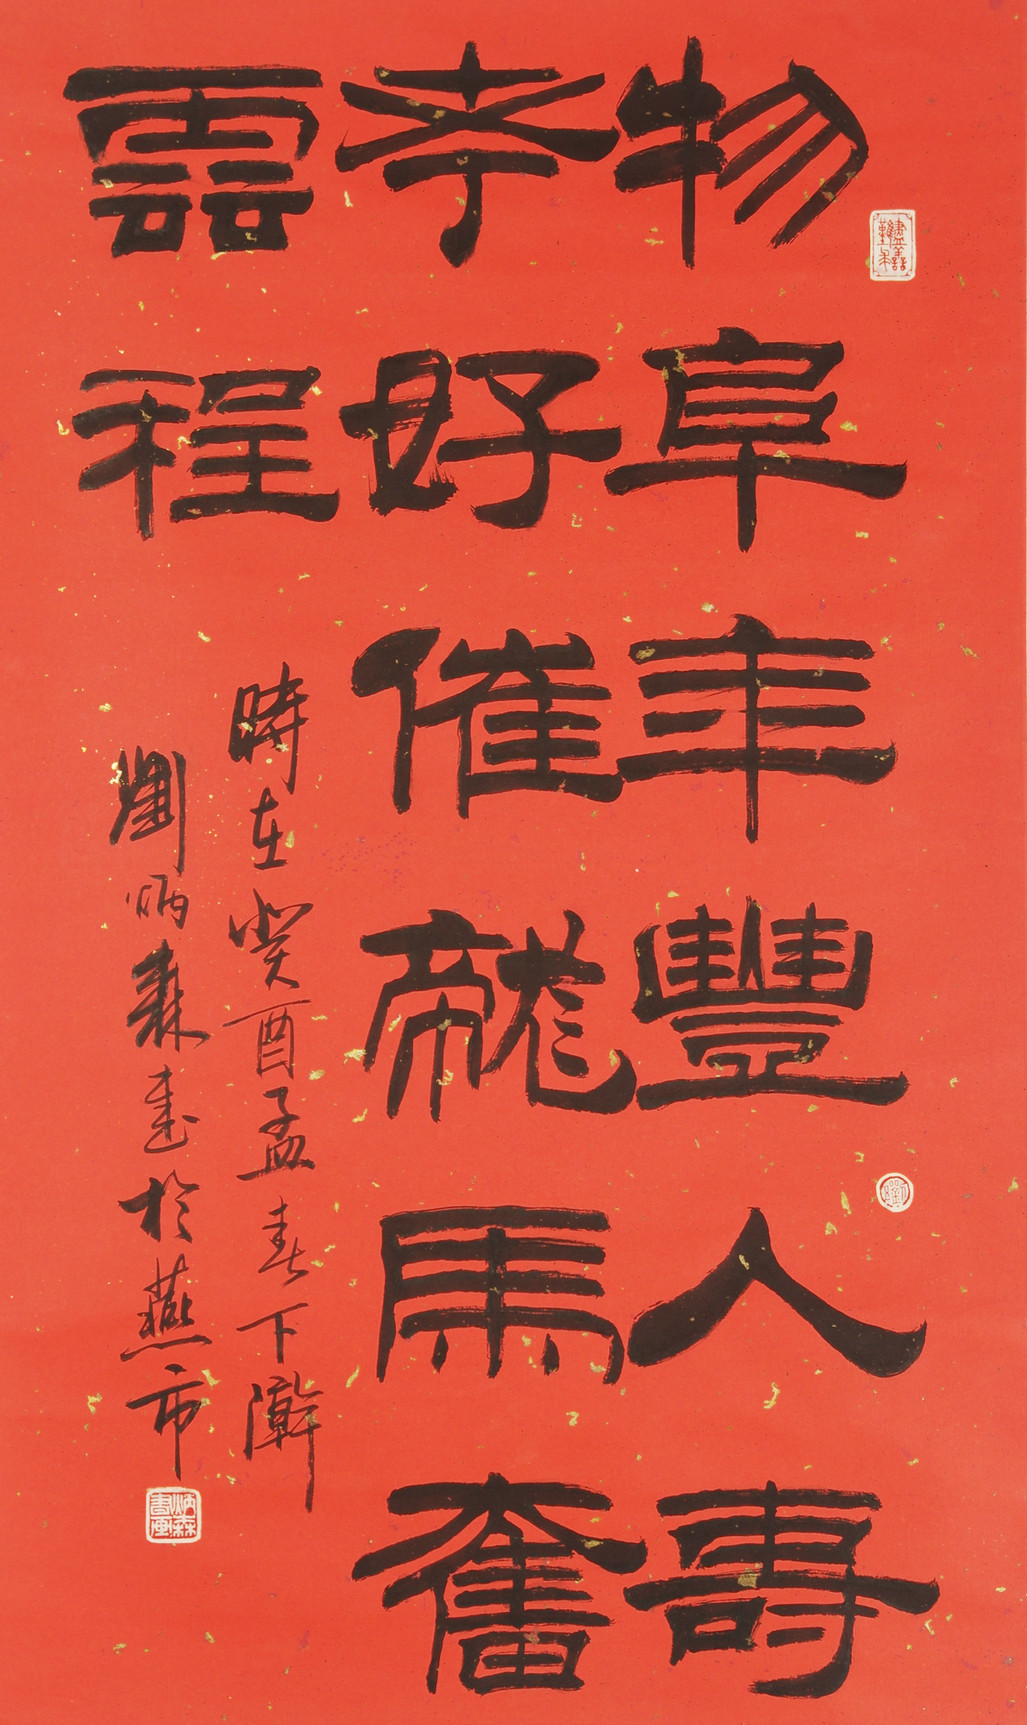 物阜年豐人壽
考好催龍馬奮
雲程
時在癸酉孟春下澣
劉炳森書於燕市
炳森書画